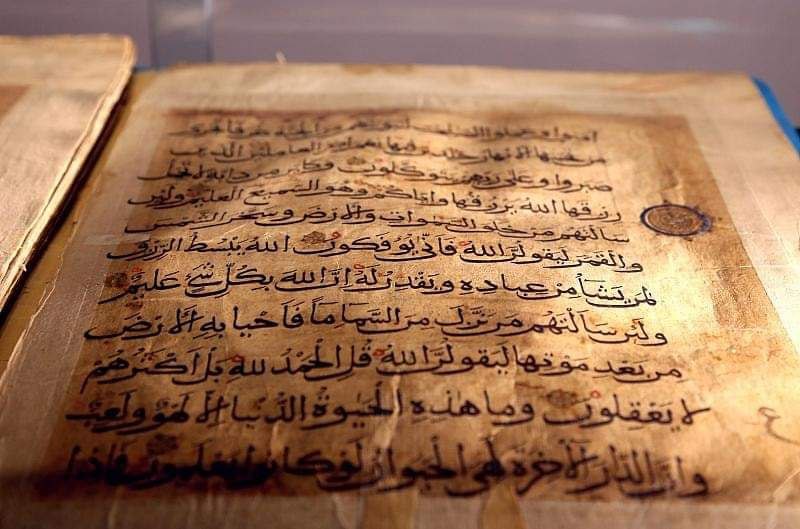 امنوا وعملوا الصلحت لنبوئنهم من الجنة غرفا تجري
من تحتها الانهار خالدين فيها نعم اجر العاملين الذين
صبروا وعلى ربهم يتوكلون وكاين من دابة لا تحمل
رزقها الله يرزقها واياكم وهو السميع العليم ولئن
سالتهم من خلق السموات والارض وسخر الشمس
والقمر ليقولن الله فانى يوفكون الله يبسط الرزق
لمن يشا من عباده ويقدر له ان الله بكل شي عليم
ولئن سالتهم من نزل من السما ما فاحيا به الارض
من بعد موتها ليقولن الله قل الحمد لله بل اكثرهم
لا يعقلون وما هذه الحيوة الدنيا الا لهو ولعب
ع
وان الدار الاخرة لهي الحيوان لو كانوا يعلمون فاذا